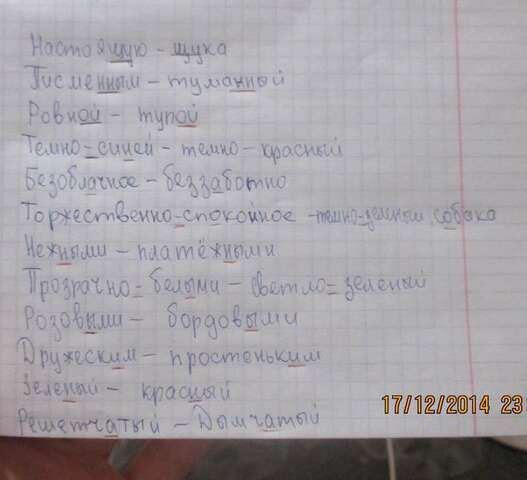 Настоящую - щука
Писменным - туманный
Ровной - тупой
Темно=синей - темно-красный
Безоблачное - беззаботно
Торжественно-спокойное - темно-зеленым, собака
Нежными - платёжными
Прозрачно=белыми - светло=зеленый
Розовыми - бордовыми
Дружеским - простеньким
Зеленый - красный
Решетчатый - Дымчатый
17/12/2014 23